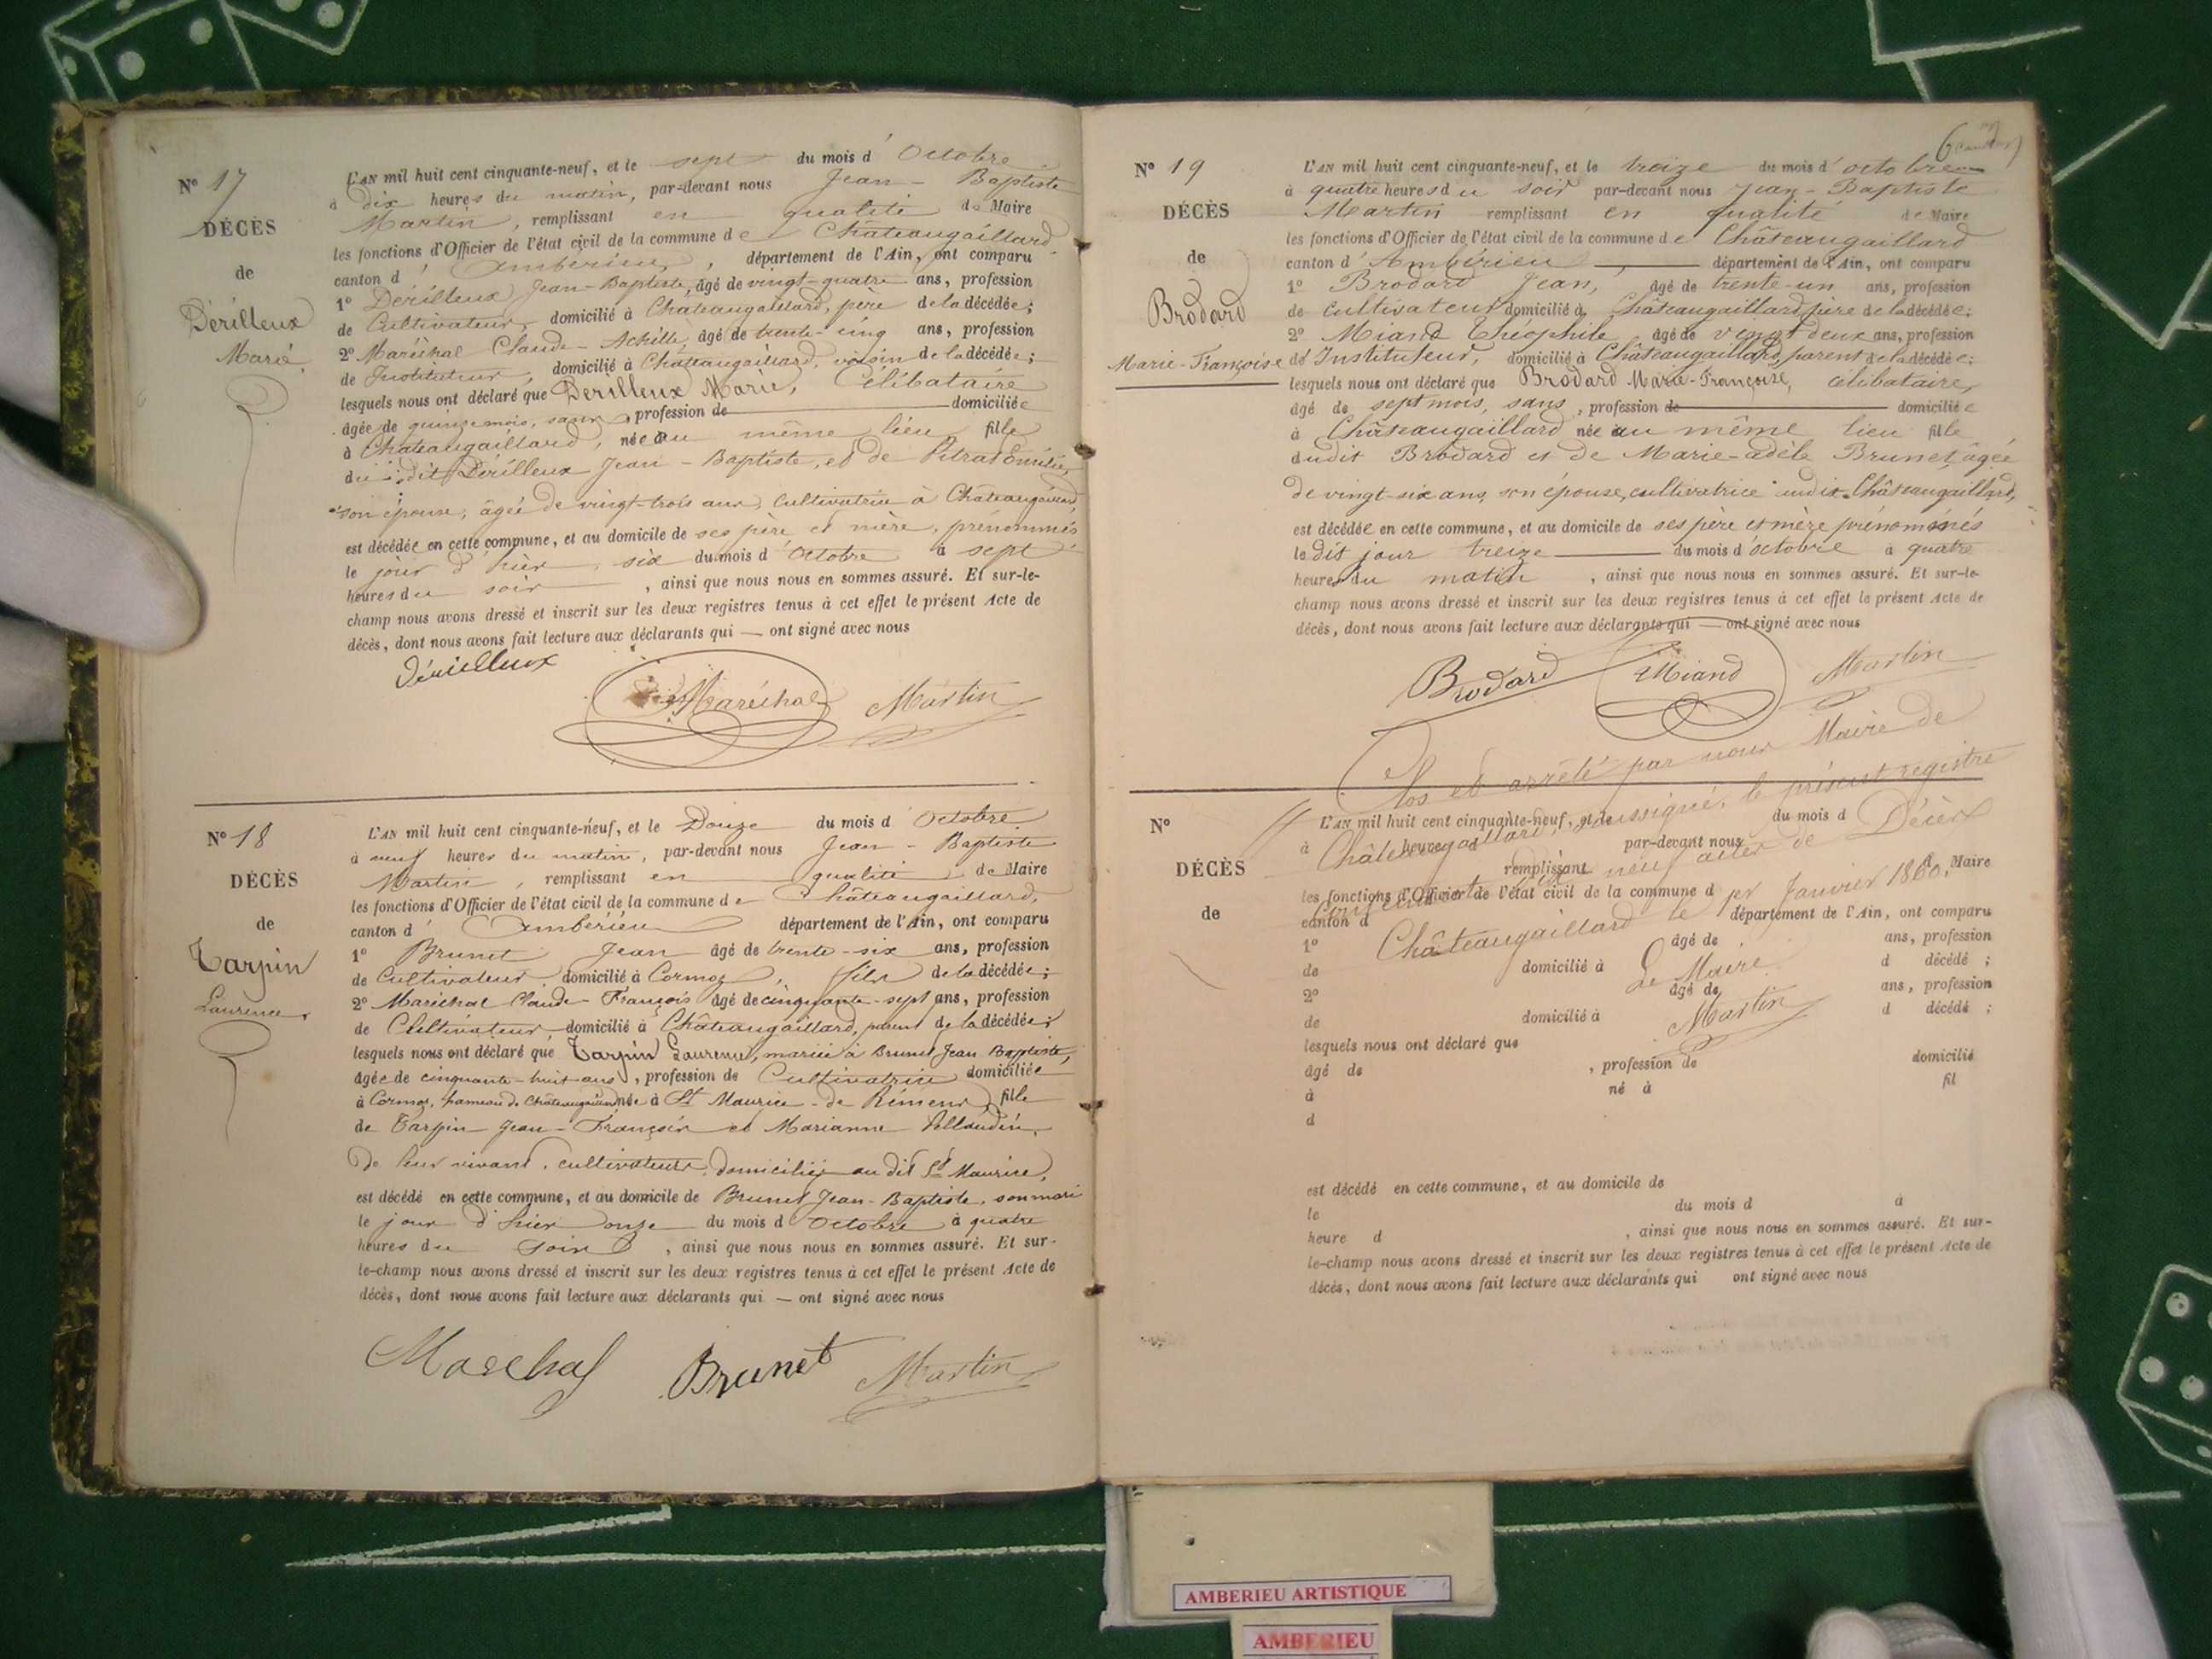 N° 17
DÉCÈS
de
Dérilleux
Marie
L'AN mil huit cent cinquante-neuf, et le sept du mois d'Octobre
à dix heures du matin, par-devant nous Jean-Baptiste
Martin, remplissant en qualité de Maire
les fonctions d'Officier de l'état civil de la commune de Châteaugaillard
canton d'Ambérieu, département de l'Ain, ont comparu
1° Dérilleux Jean-Baptiste, âgé de vingt-quatre ans, profession
de Cultivateur, domicilié à Châteaugaillard, père de la décédée;
2° Maréchal Claude-Achille, âgé de trente-cinq ans, profession
de Instituteur, domicilié à Châteaugaillard, voisin de la décédée;
lesquels nous ont déclaré que Dérilleux Marie, Célibataire
âgée de quinze mois, sans, profession de domiciliée
à Chateaugaillard, née au même lieu fille
du dit Dérilleux Jean-Baptiste, et de
son épouse, âgée de vingt-trois ans, Cultivatrice à Châteaugaillard,
est décédée en cette commune, et au domicile de ses père et mère, prénommés
le jour d'hier, six du mois d'Octobre à sept
heures du soir, ainsi que nous nous en sommes assuré. Et sur-le-
champ nous avons dressé et inscrit sur les deux registres tenus à cet effet le présent Acte de
décès, dont nous avons fait lecture aux déclarants qui — ont signé avec nous
Dérilleux
Maréchal Martin
N° 18
DÉCÈS
de
Tarpin
Laurence
L'AN mil huit cent cinquante-neuf, et le Douze du mois d'Octobre
à neuf heures du matin, par-devant nous Jean-Baptiste
Martin, remplissant en qualité de Maire
les fonctions d'Officier de l'état civil de la commune de Châteaugaillard,
canton d'Ambérieu département de l'Ain, ont comparu
1° Brunet Jean âgé de trente-six ans, profession
de Cultivateur domicilié à Cormoz, fils de la décédée;
2° Maréchal Claude-François âgé de cinquante-sept ans, profession
de Cultivateur domicilié à Châteaugaillard, parent de la décédée;
lesquels nous ont déclaré que Tarpin Laurence, mariée à Brunet Jean Baptiste,
âgée de cinquante-huit ans, profession de Cultivatrice domiciliée
à Cormoz, hameau de Châteaugaillard née à St Maurice-de Rémens, fille
de Tarpin Jean-François et Marianne
De leur vivant, cultivateurs domiciliés au dit St Maurice,
est décédé en cette commune, et au domicile de Brunet Jean-Baptiste, son mari
le jour d'hier onze du mois d'Octobre à quatre
heures du soir, ainsi que nous nous en sommes assuré. Et sur-
le-champ nous avons dressé et inscrit sur les deux registres tenus à cet effet le présent Acte de
décès, dont nous avons fait lecture aux déclarants qui — ont signé avec nous
Marchal Brunet Martin
6
N° 19
DÉCÈS
de
Brodard
Marie-Françoise
L'AN mil huit cent cinquante-neuf, et le treize du mois d'octobre
à quatre heures du soir par-devant nous Jean-Baptiste
Martin remplissant en qualité de Maire
les fonctions d'Officier de l'état civil de la commune de Châteaugaillard
canton d'Ambérieu, département de l'Ain, ont comparu
1° Brodard Jean, âgé de trente-un ans, profession
de cultivateur domicilié à Châteaugaillard, père de la décédée;
2° Miand Théophile, âgé de vingt deux ans, profession
de Instituteur, domicilié à Châteaugaillard, parent de la décédée;
lesquels nous ont déclaré que Brodard Marie-Françoise, célibataire,
âgé de sept mois, sans, profession de domiciliée
à Châteaugaillard née au même lieu fille
dudit Brodard et de Marie-adèle Brunet, âgée
de vingt-six ans, son épouse, cultivatrice audit Châteaugaillard,
est décédée en cette commune, et au domicile de ses père et mère prénommés
le dit jour treize du mois d'octobre à quatre
heures du matin, ainsi que nous nous en sommes assuré. Et sur-le-
champ nous avons dressé et inscrit sur les deux registres tenus à cet effet le présent Acte de
décès, dont nous avons fait lecture aux déclarants qui — ont signé avec nous
Brodard Miand Martin
Clos et arrêté par nous Maire de
Châteaugaillard, soussigné, le présent registre
contenant dix neuf actes de Décès
Châteaugaillard le 1er Janvier 1860.
Le Maire
Martin
N°
DÉCÈS
de
L'AN mil huit cent cinquante-neuf, et le du mois d
à heure d par-devant nous
remplissant d Maire
les fonctions d'Officier de l'état civil de la commune d
canton d département de l'Ain, ont comparu
1° âgé de ans, profession
de domicilié à d décédé ;
2° âgé de ans, profession
de domicilié à d décédé ;
lesquels nous ont déclaré que
âgé de , profession de domicilié
à né à fil
d
est décédé en cette commune, et au domicile de
le du mois d à
heure d , ainsi que nous nous en sommes assuré. Et sur-
le-champ nous avons dressé et inscrit sur les deux registres tenus à cet effet le présent Acte de
décès, dont nous avons fait lecture aux déclarants qui ont signé avec nous
AMBERIEU ARTISTIQUE
AMBERIEU